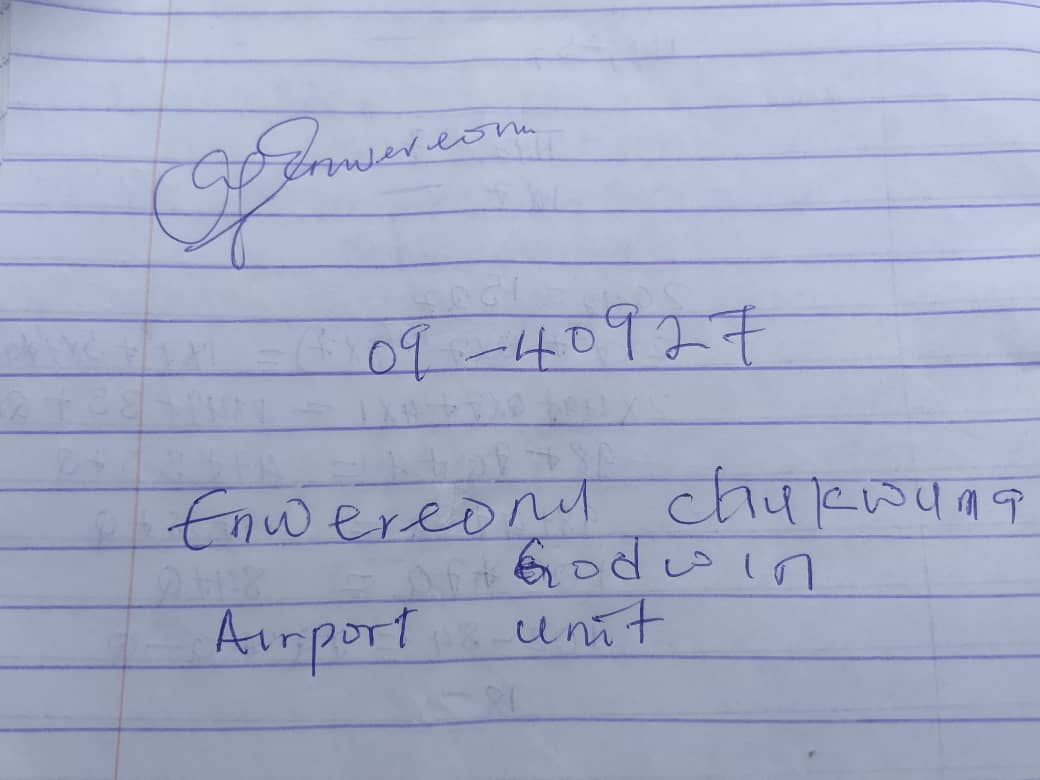 Enwereonu
09-40927
Enwereonu Chukwuma
Godwin
Airport unit